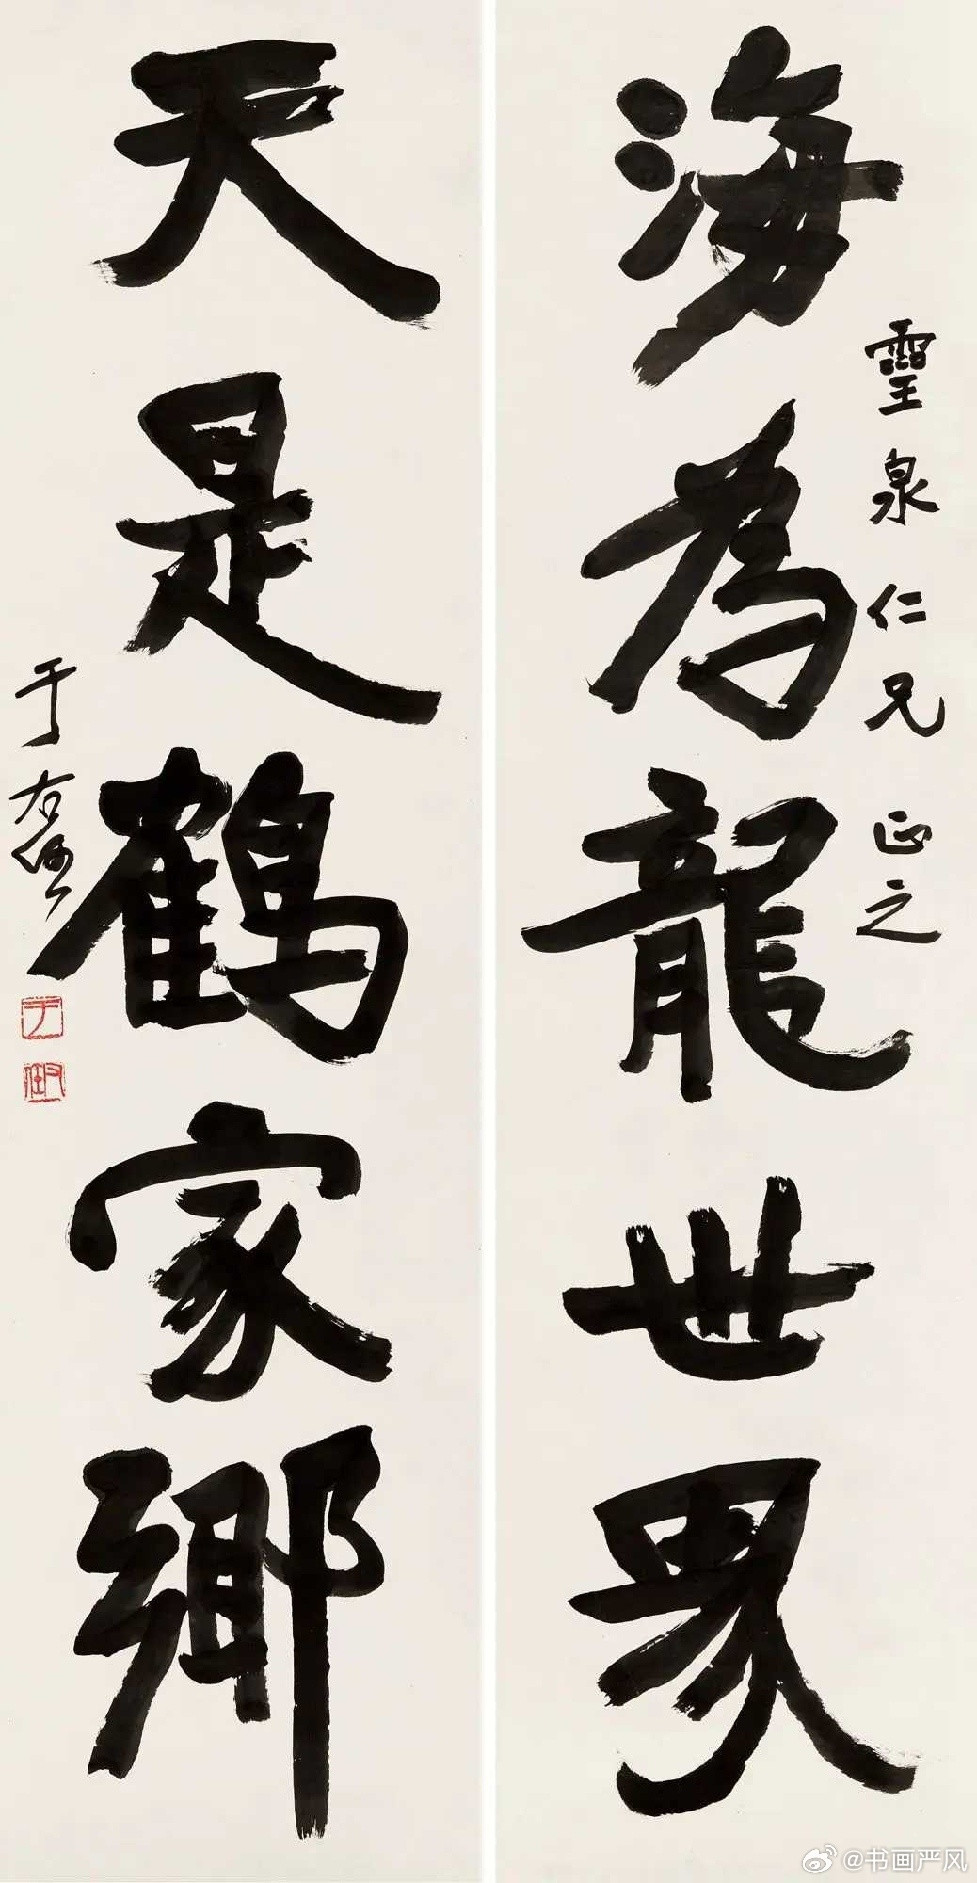 靈泉仁兄 正之
海為龍世界
天是鶴家鄉
于右任
@书画严风